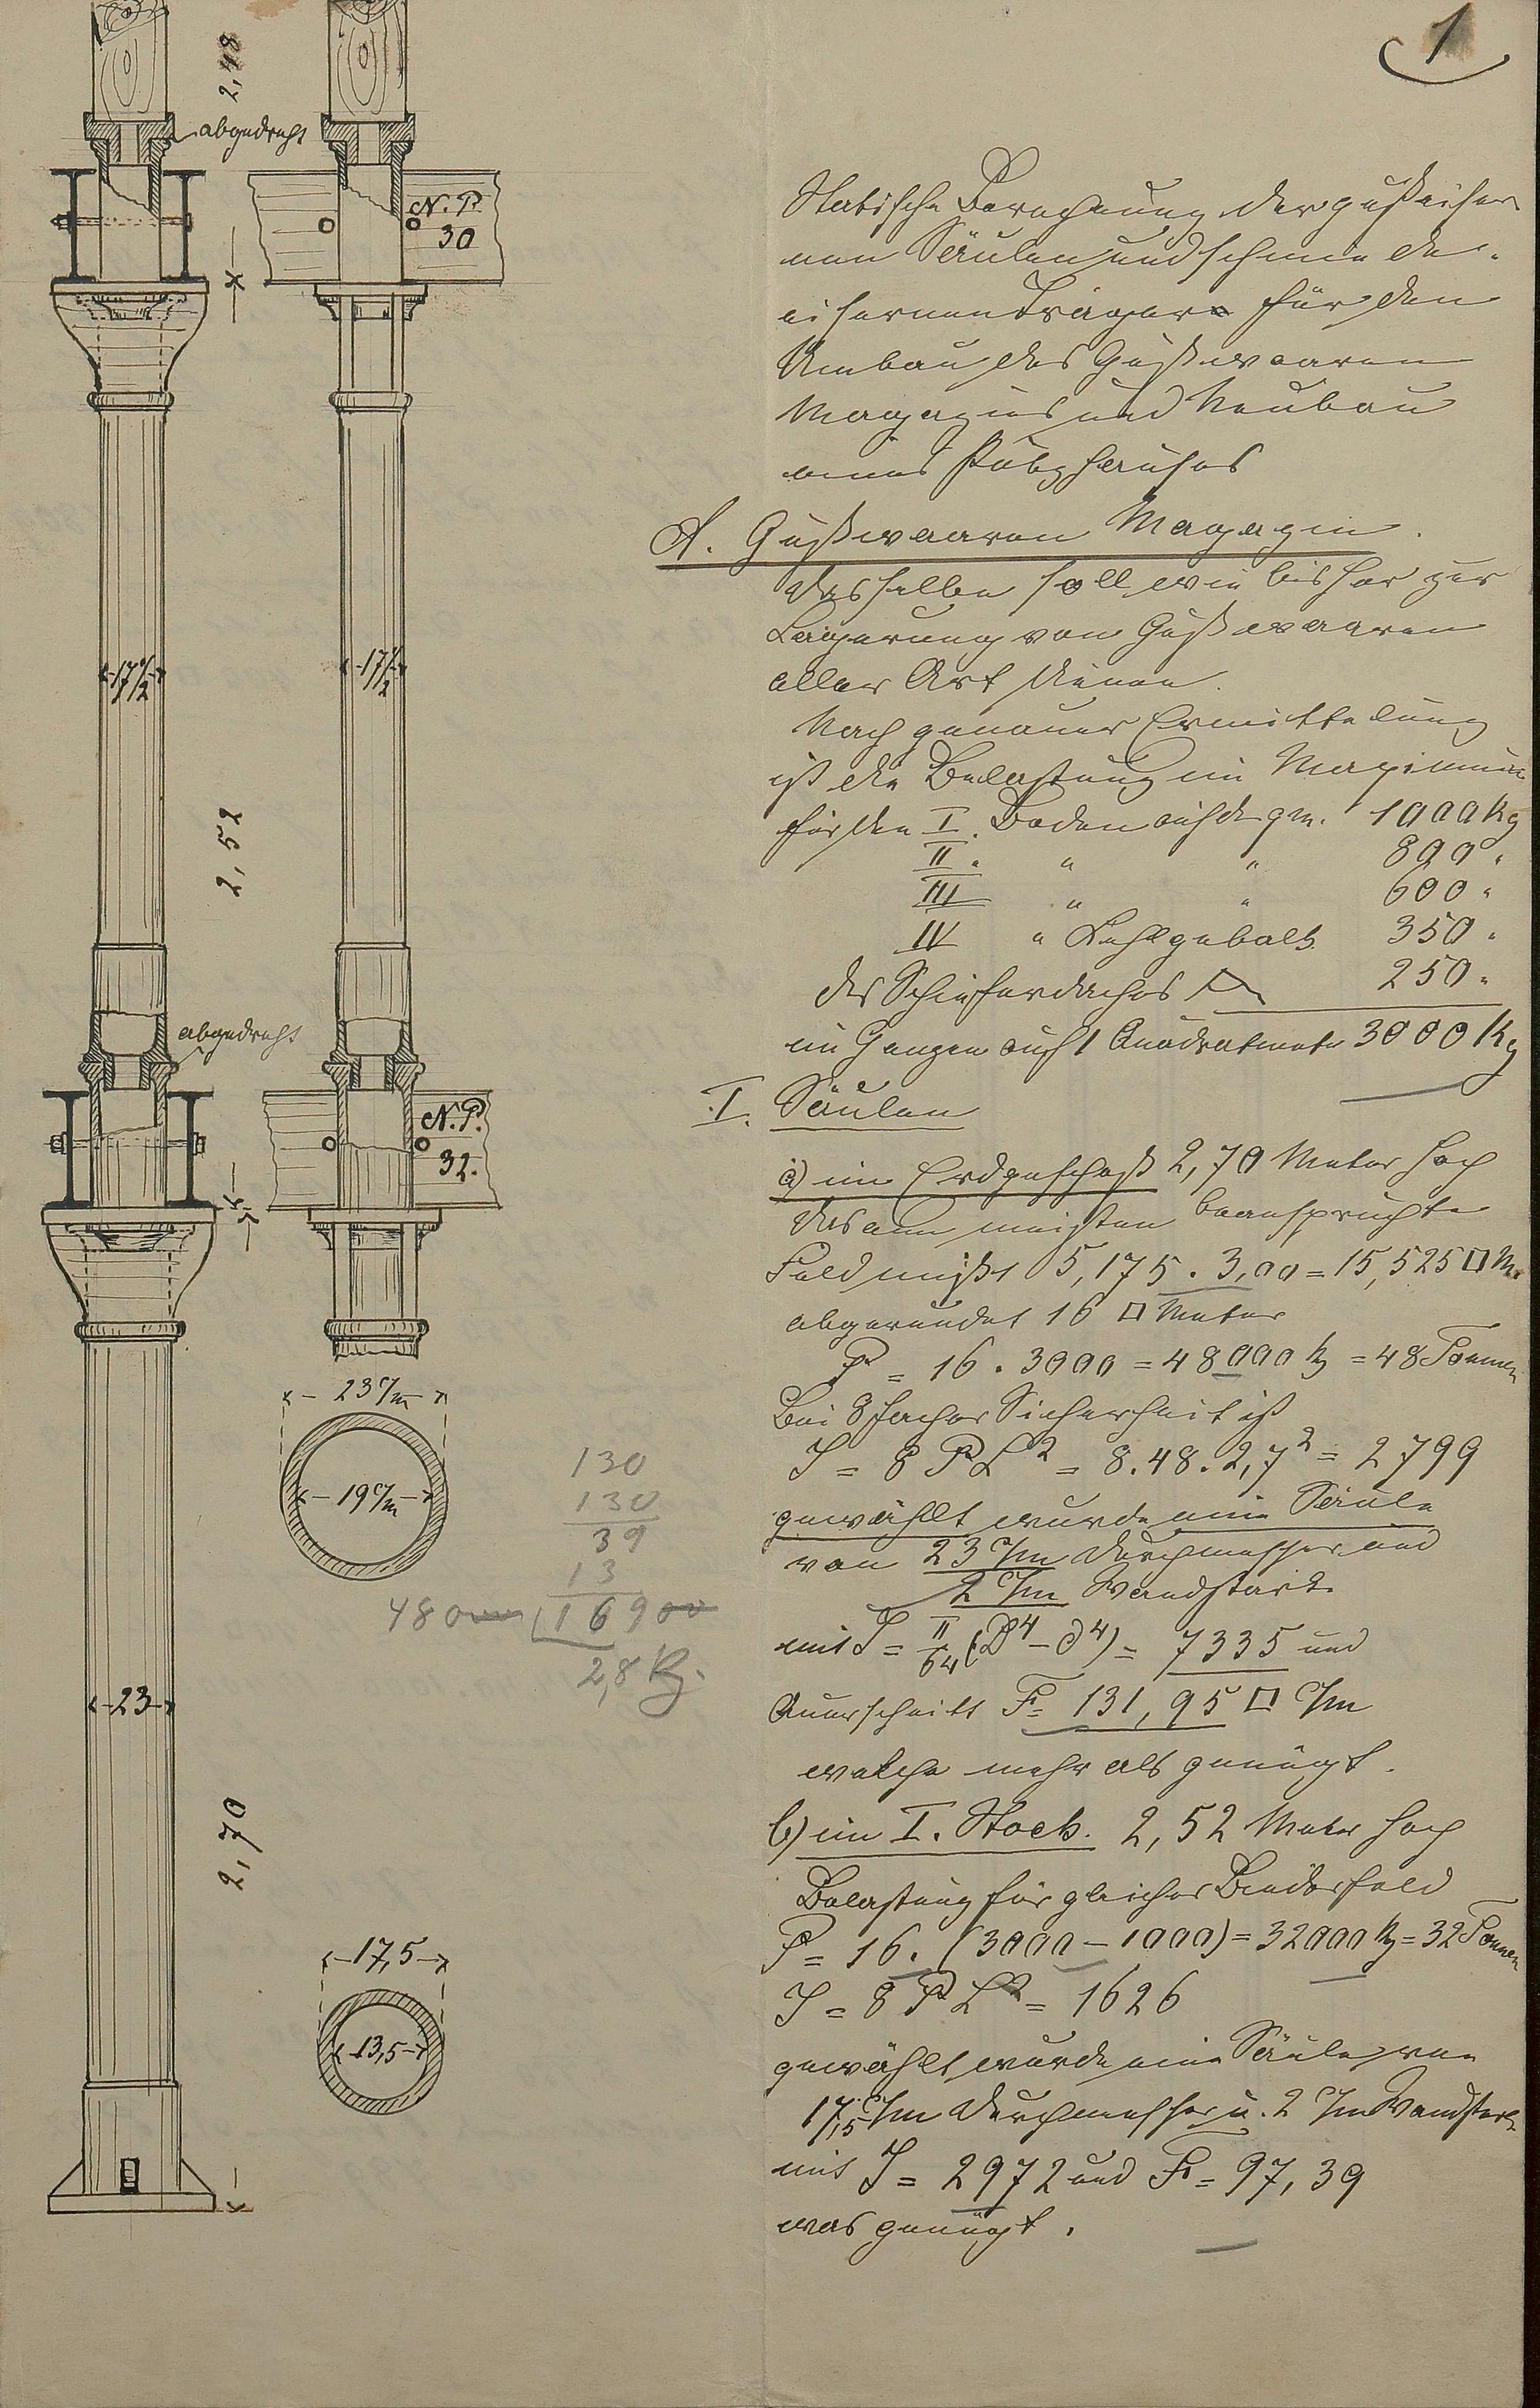 1
2,48
abgedreht
N. P.
30
17 1/2
17 1/2
2,52
abgedreht
N. P.
32.
23 c/m
19 c/m
130
130
39
13
48000 16900
2,8 Kg.
23
2,70
17,5
13,5
Statische Berechnung der gußeiser
nen Säulen und schmiede-
eisernen Träger für den
Umbau des Gußwaaren
Magazins und Neubau
eines Putzhauses
A. Gußwaaren Magazin.
Dasselbe soll wie bisher zur
Lagerung von Gußwaaren
aller Art dienen.
Nach genauer Ermittelung
ist die Belastung im Maximum
für den I. Boden auf d. qm. 1000 Kg
II. " " 800 "
III " " 600 "
IV " Kehlgebälk 350 "
des Schieferdaches 250 "
im Ganzen auf 1 Quadratmeter 3000 Kg
I. Säulen
a) im Erdgeschoß 2,70 Meter hoch
das am meisten beanspruchte
Feld mißt 5,175 . 3,00 = 15,525 □ M.
abgerundet 16 □ Meter
P = 16 . 3000 = 48000 Kg = 48 Tonnen
Bei 8 facher Sicherheit ist
J = 8 P L² = 8.48.2,7² = 2799
gewählt wurde eine Säule
von 23 c/m Durchmesser und
2 c/m Wandstärke
mit J = π/64 (D⁴ – d⁴) = 7335 und
Querschnitt F = 131,95 □ c/m
welche mehr als genügt.
b) im I. Stock. 2,52 Meter hoch
Belastung für gleiches Binderfeld
P = 16. (3000 – 1000) = 32000 Kg = 32 Tonnen
J = 8 P L² = 1626
gewählt wurde eine Säule von
17,5 c/m Durchmesser u. 2 c/m Wandstärke
mit J = 2972 und F = 97,39
was genügt.